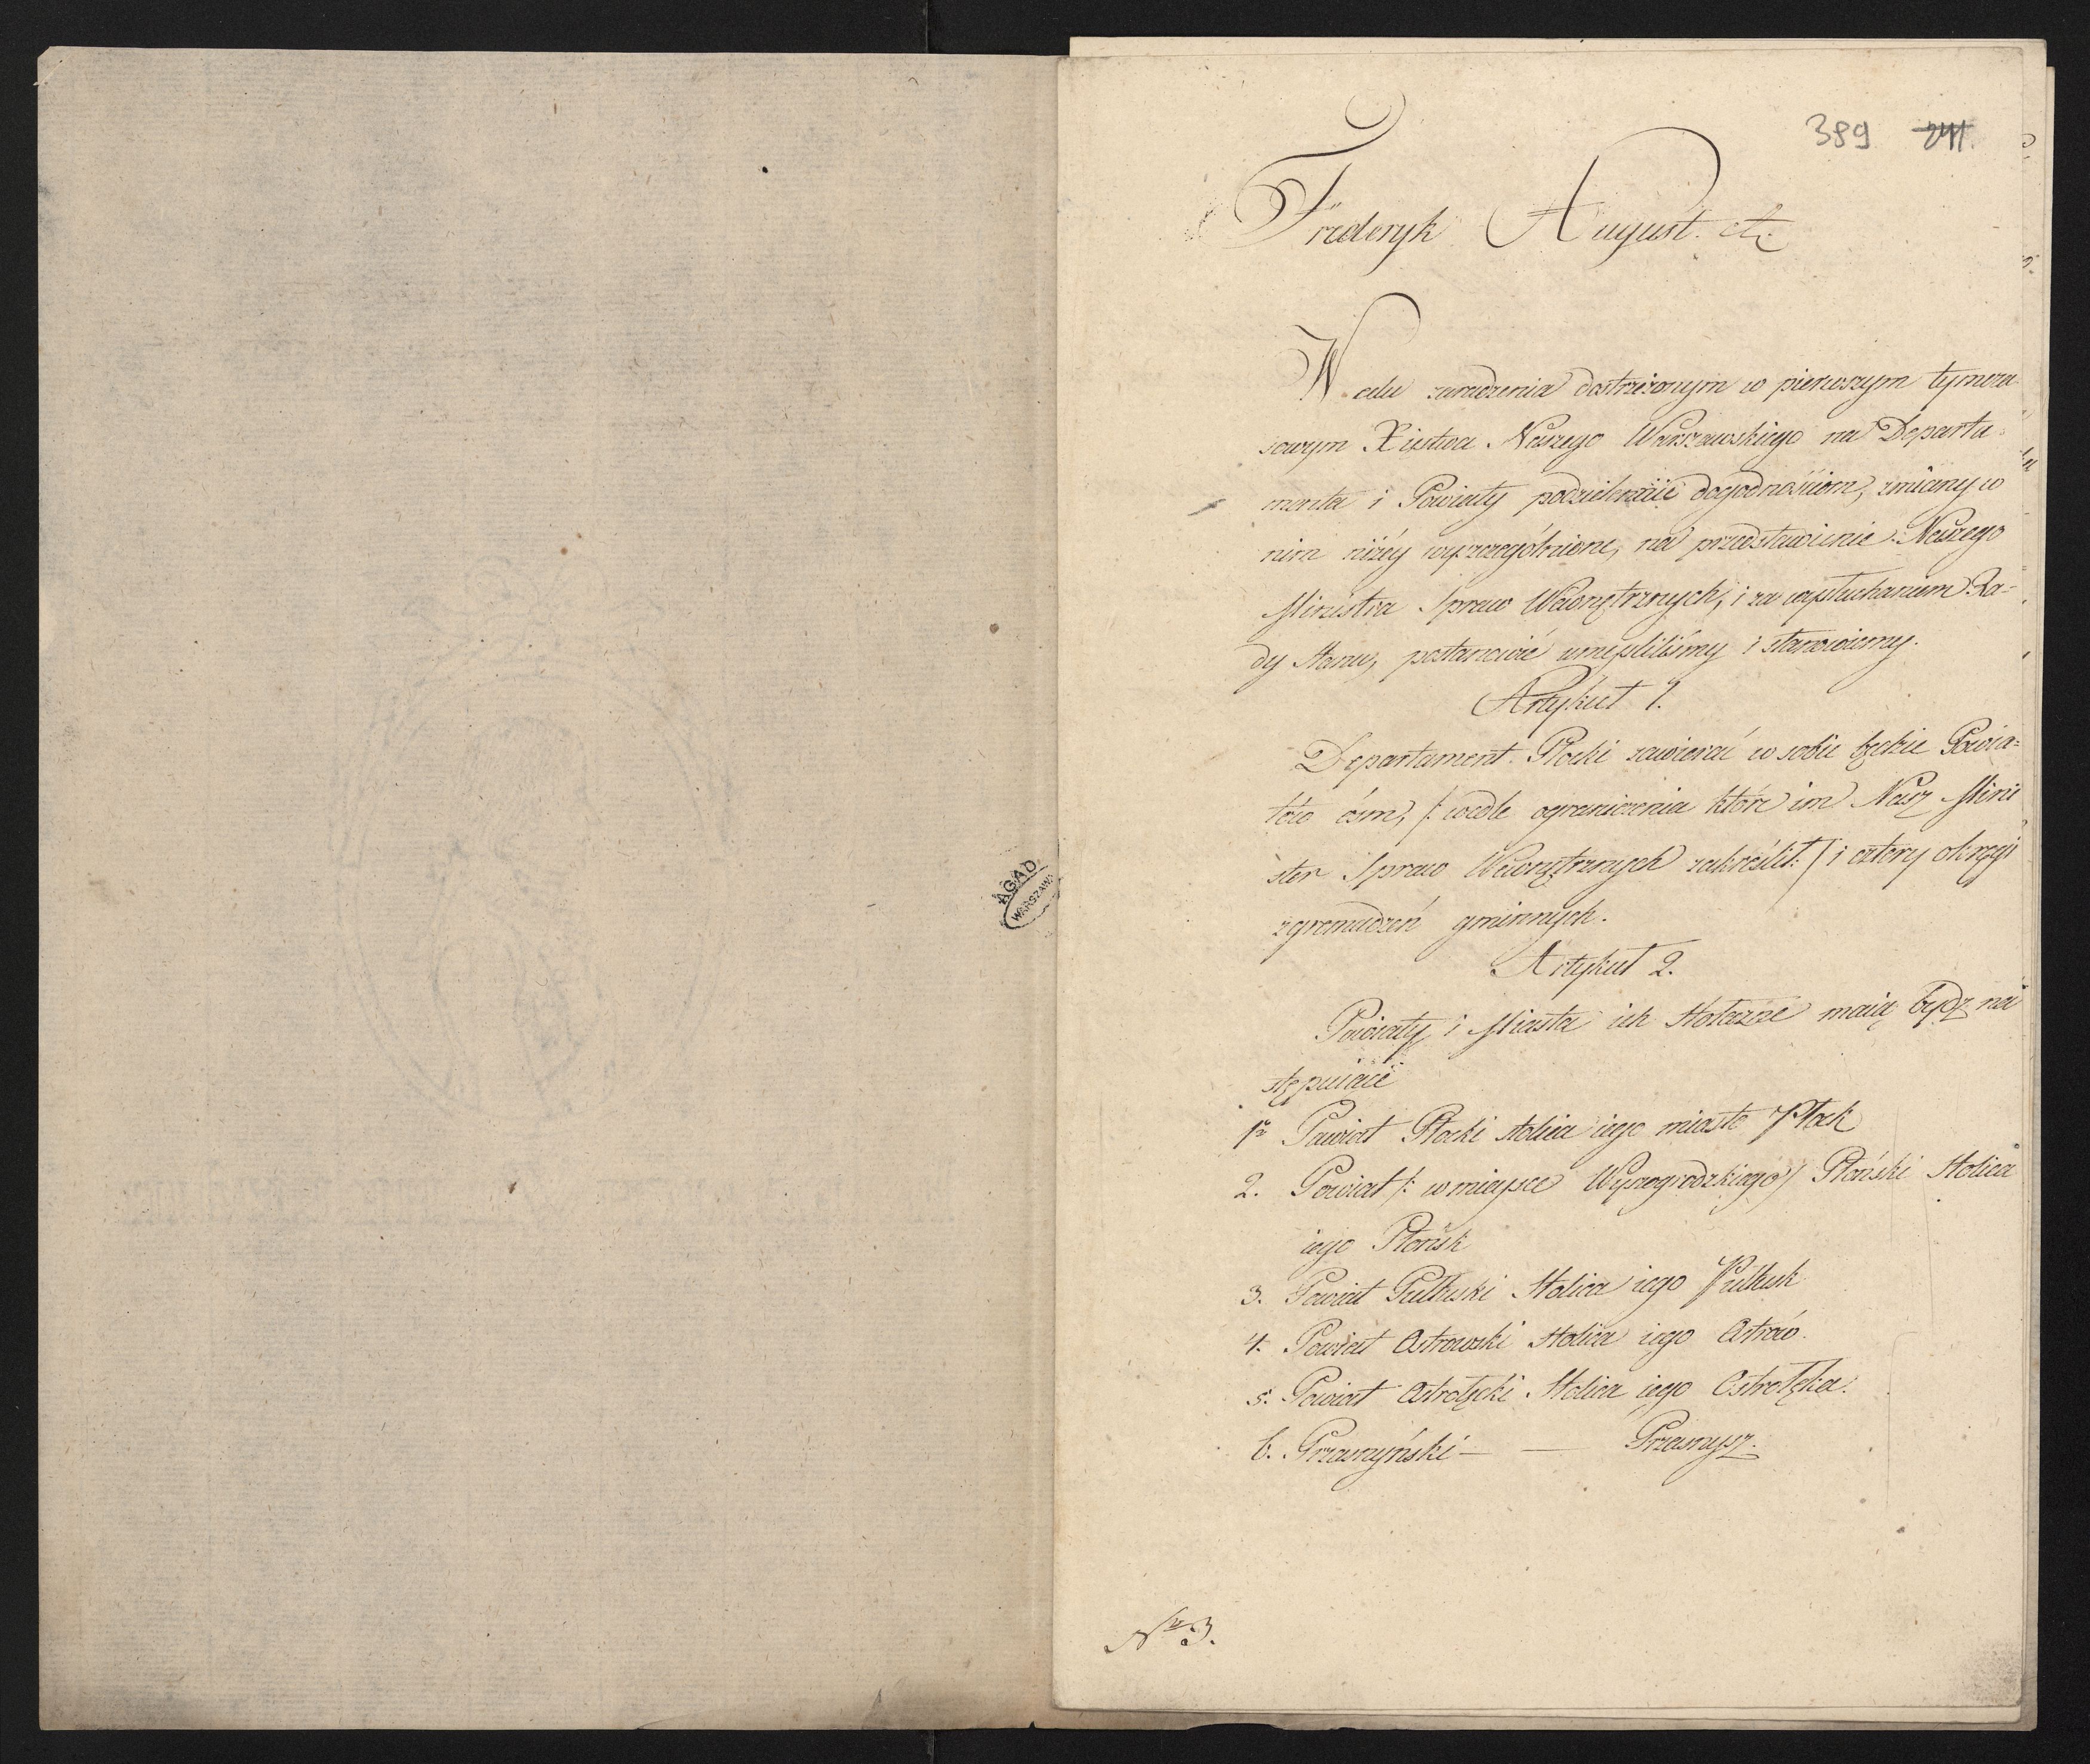 389 241.
Fréderyk August. etc.
W celu zaradzenia dostrzeżonym w pierwszym tymcza
sowym Xięstwa Naszego Warszawskiego na Departa=
menta i Powiaty podzielenie dogodnościom, zmiany w
nim niżéy wyszczególnione, na przedstawienie Naszego
Ministra Spraw Wewnętrznych, i za wysłuchaniem Ra=
dy Stanu, postanowić umyśliliśmy i stanowiemy.
Artykuł 1.
Departament Płocki zawierać w sobie będzie Powia=
tów ośm, /: wedle ograniczenia które im Nasz Mini
ster Spraw Wewnętrznych zakreślił :/ i cztery okręgi
zgromadzeń gminnych.
Artykuł 2.
Powiaty i Miasta ich stołeczne maią bydz na
stępuiące
1o Powiat Płocki stolica iego miasto Płock
2. Powiat /: w mieysce Wyszogrodzkiego / Płoński stolica
iego Płońsk
3. Powiat Pułtuski Stolica iego Pułtusk
4. Powiat Ostrowski stolica iego Ostrów.
5. Powiat Ostrołęcki Stolica iego Ostrołęka.
6. Przasnyński — — Przasnysz.
Nro 3.
AGAD
WARSZAWA